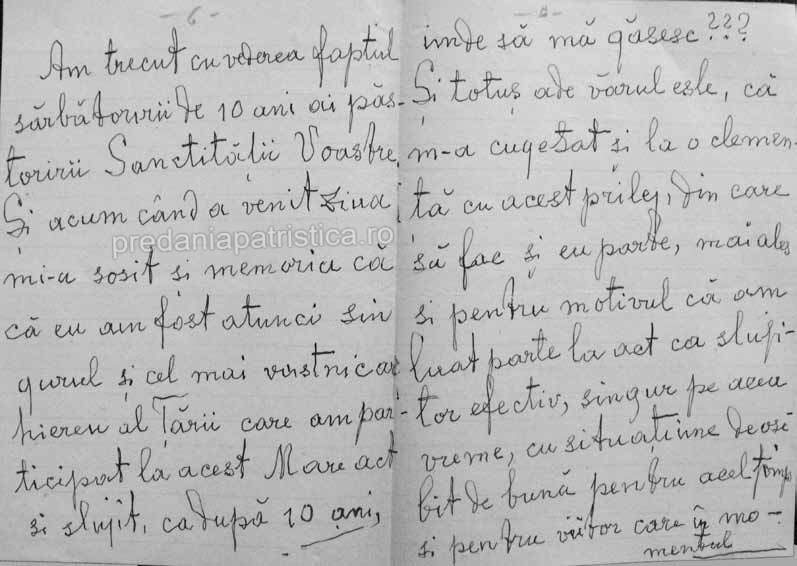 - 6 -
Am trecut cu vederea faptul
sărbătoririi de 10 ani ai păs-
toririi Sanctității Voastre,
Și acum când a venit ziua
mi-a sosit și memoria că
că eu am fost atunci sin
gurul și cel mai vârstnic ar
hiereu al Țării care am par-
ticipat la acest Mare act
si slujit, ca după 10 ani,
unde să mă găsesc???
Și totuș ade vărul este, că
m-a cugetat și la o clemen-
tă cu acest prilej, din care
să fac și eu parte, mai ales
si pentru motivul că am
luat parte la act ca sluji-
tor efectiv, singur pe acea
vreme, cu situațiune deose
bit de bună pentru acel timp
si pentru viitor care în mo-
mentul
predaniapatristica.ro